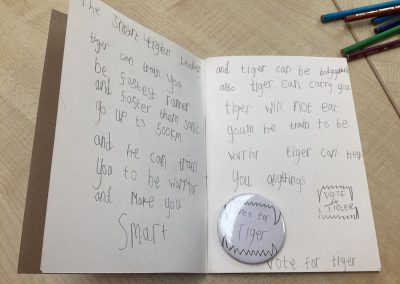 The smart tiger leader
tiger can train you
be fastest runner
and faster them sonic
go up to 500km
and he can train
you to be worrior
and make you
Smart
and tiger can be bodyguard
also tiger can carry you
tiger will not eat
you he train to be
worrior tiger can help
you anythings
VOTE
TIGER
Vote for
Tiger
Vote for tiger